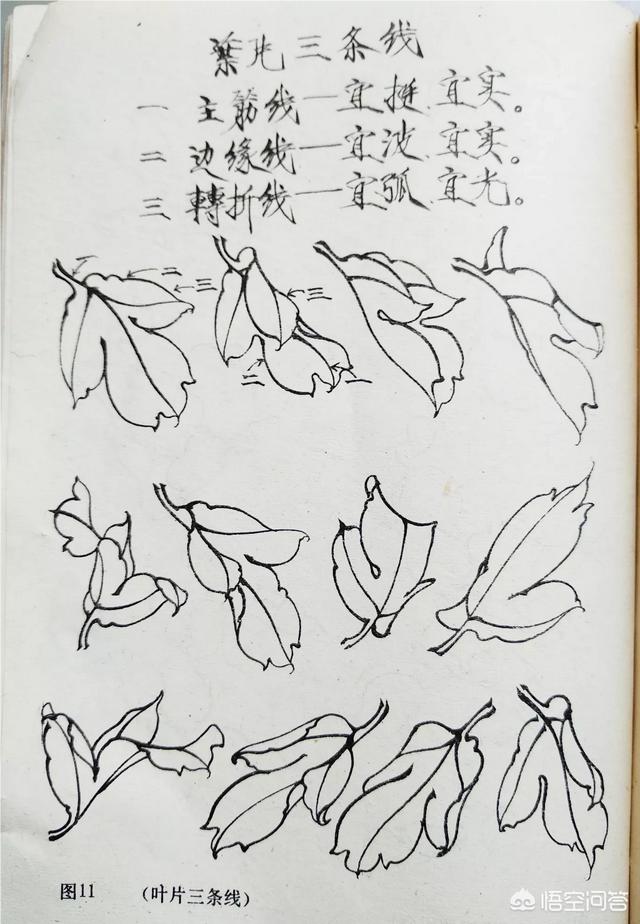 葉片三条线
一 主筋线—宜挺、宜实。
二 边缘线—宜波、宜实。
三 轉折线—宜弧、宜光。
一 二 三
三
二 一
图11 (叶片三条线)
悟空问答